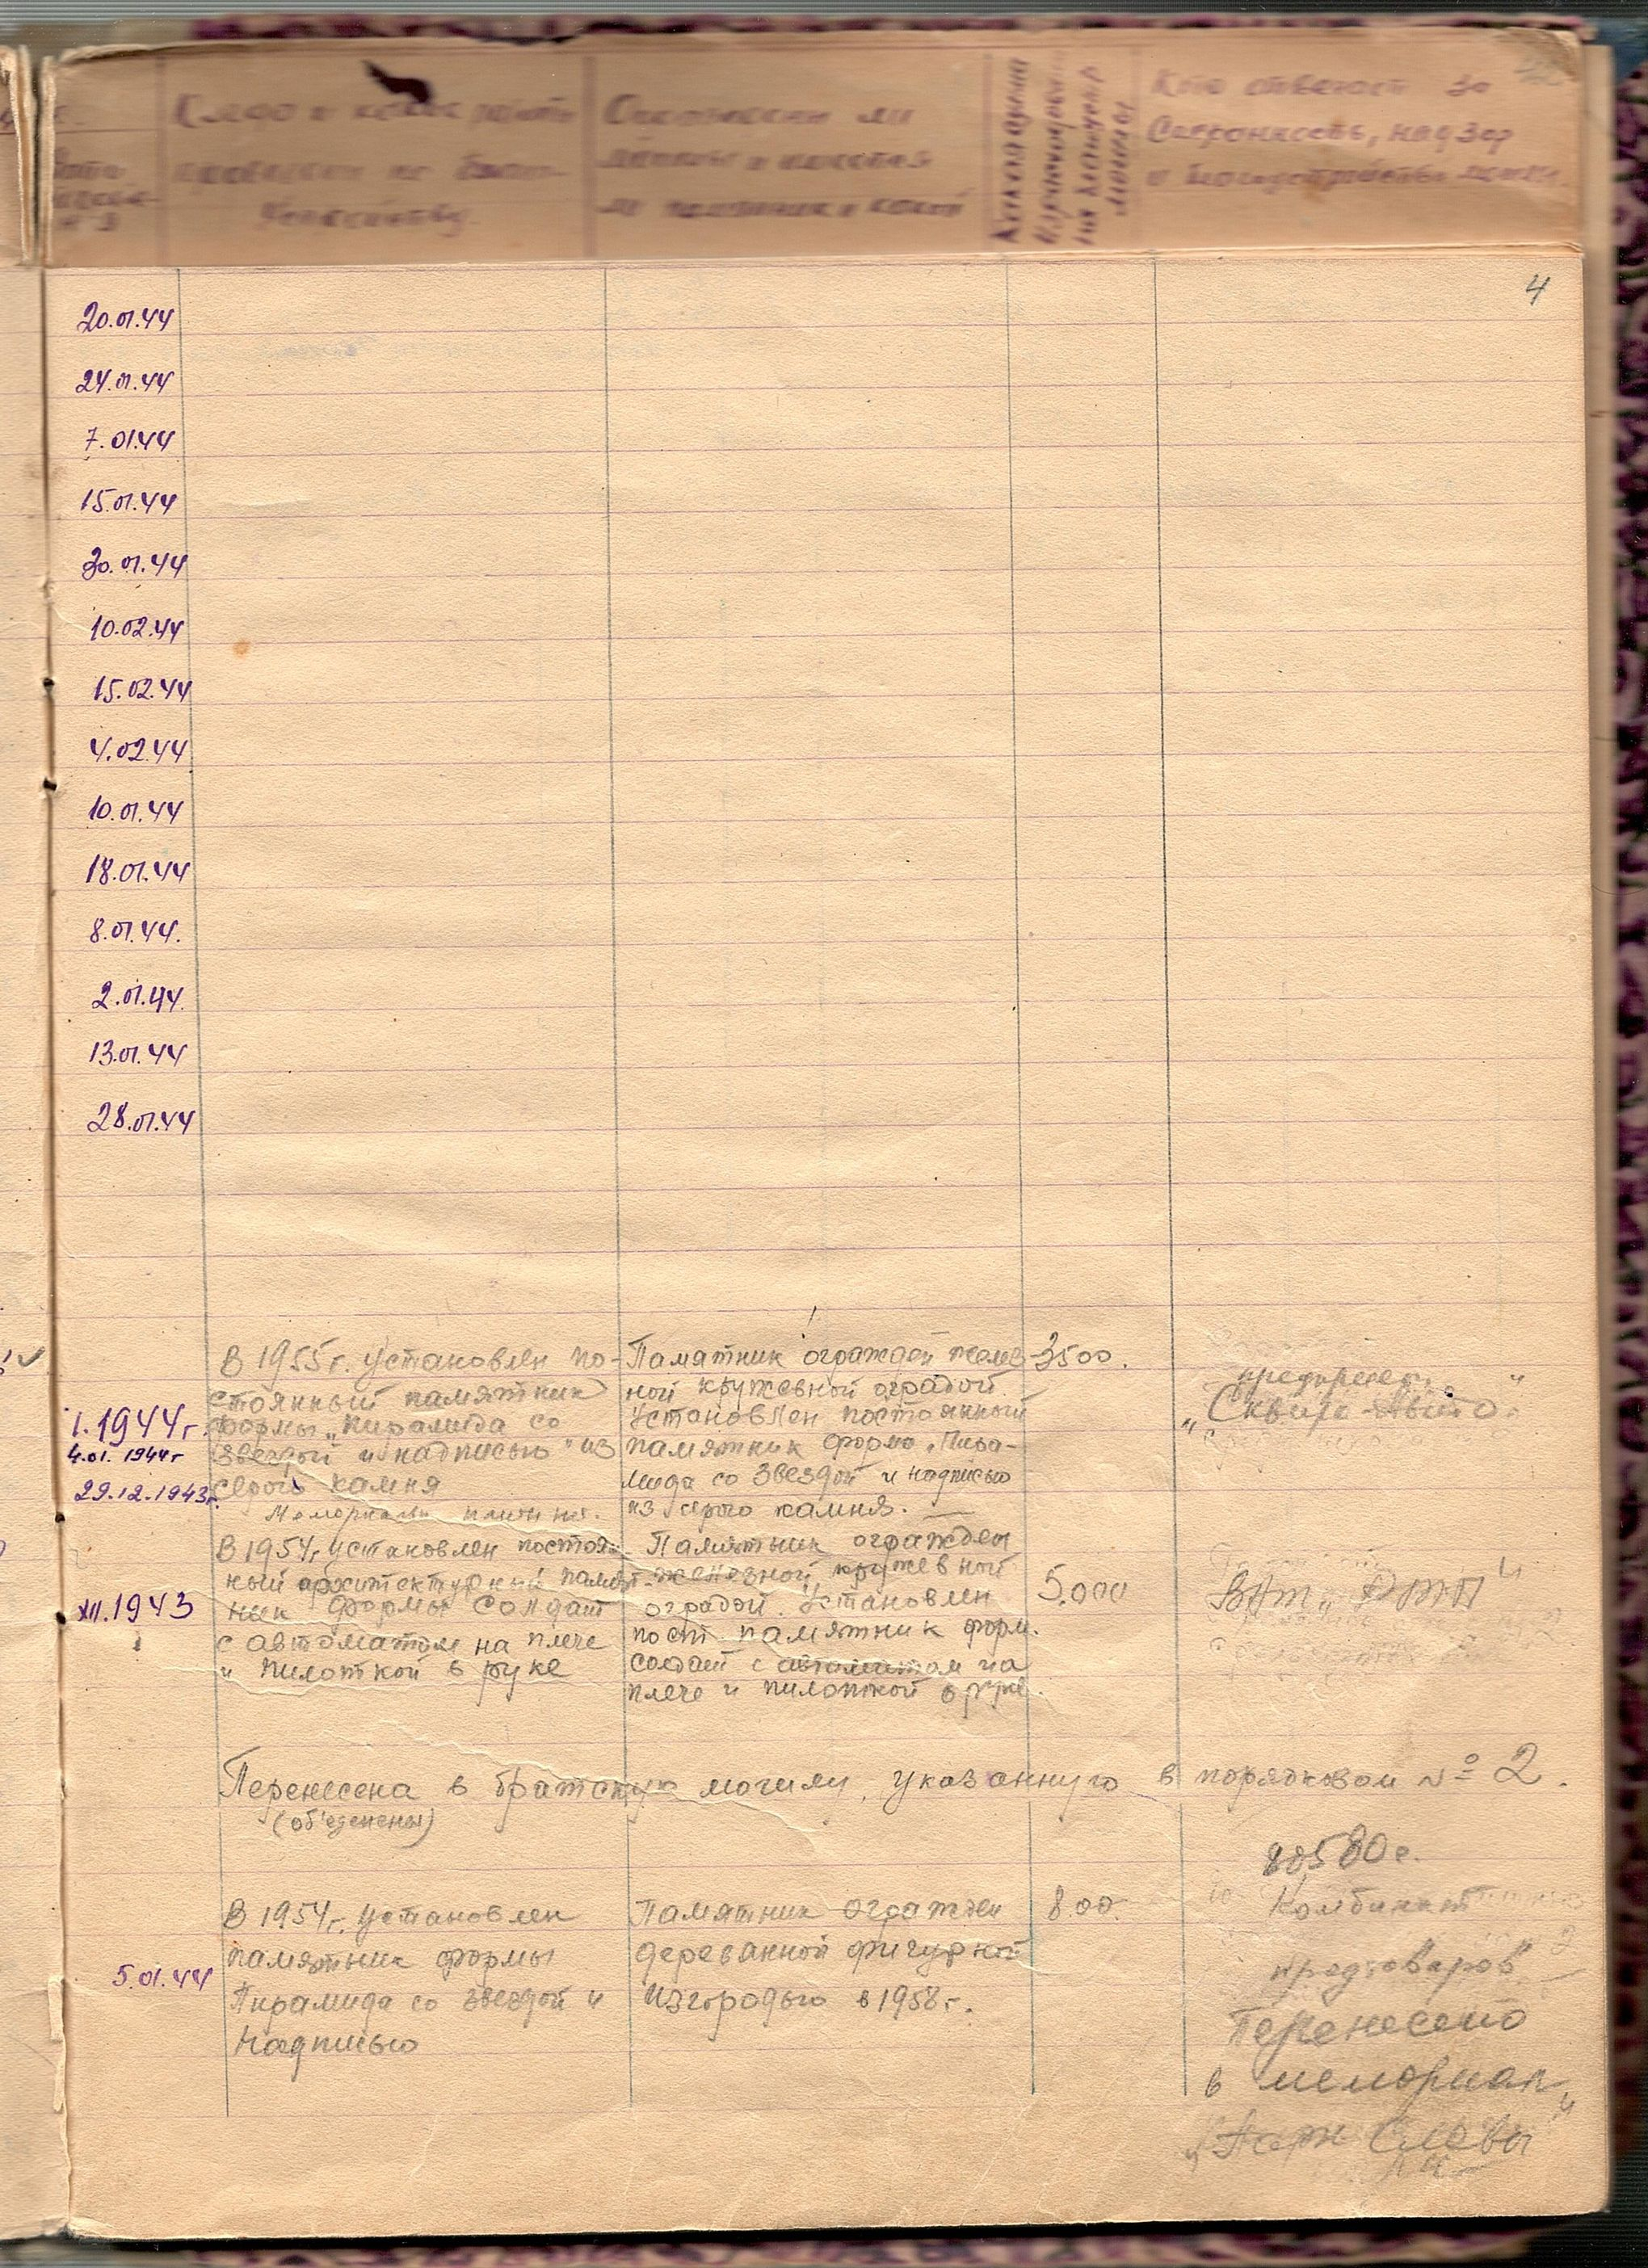 Кто отвечает за
сохранность, надзор
и благоустройство могил
4
20.01.44
24.01.44
7.01.44
15.01.44
30.01.44
10.02.44
15.02.44
4.02.44
10.01.44
18.01.44
8.01.44.
2.01.44.
13.01.44
28.01.44
I.1944г.
4.01.1944г
29.12.1943г.
В 1955г. установлен по-
стоянный памятник
формы „Пирамида со
звездой и надписью" из
серого камня
Мемориальн плиты
Памятник огражден желез
ной кружевной оградой.
Установлен постоянный
памятник форма „Пира-
мида со звездой и надписью
из серого камня.
3500.
„Сквира-Авто"
XII.1943
В 1954г. установлен постоян-
ный архитектурный памят-
ник формы солдат
с автоматом на плече
и пилоткой в руке
Памятник огражден
железной кружевной
оградой. Установлен
пост памятник форм.
солдат с автоматом на
плече и пилоткой в руке.
5.000
Перенесена в братскую могилу, указанную в порядковом № 2.
(об'еденены)
5.01.44
В 1954г. установлен
памятник формы
Пирамида со звездой и
надписью
Памятник огражден
деревянной фигурной
изгородью в 1958г.
8.00.
Комбинат
продтоваров
Перенесено
в мемориал
„Парк Славы"